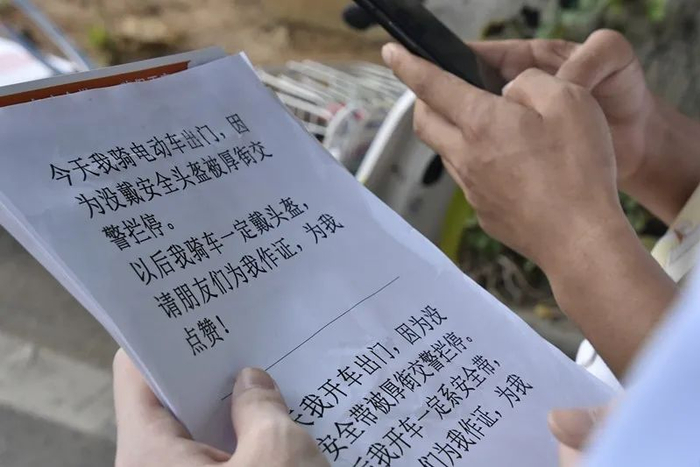 今天我骑电动车出门，因
为没戴安全头盔被厚街交
警拦停。
以后我骑车一定戴头盔，
请朋友们为我作证，为我
点赞！
天我开车出门，因为没
安全带被厚街交警拦停。
后我开车一定系安全带，
们为我作证，为我